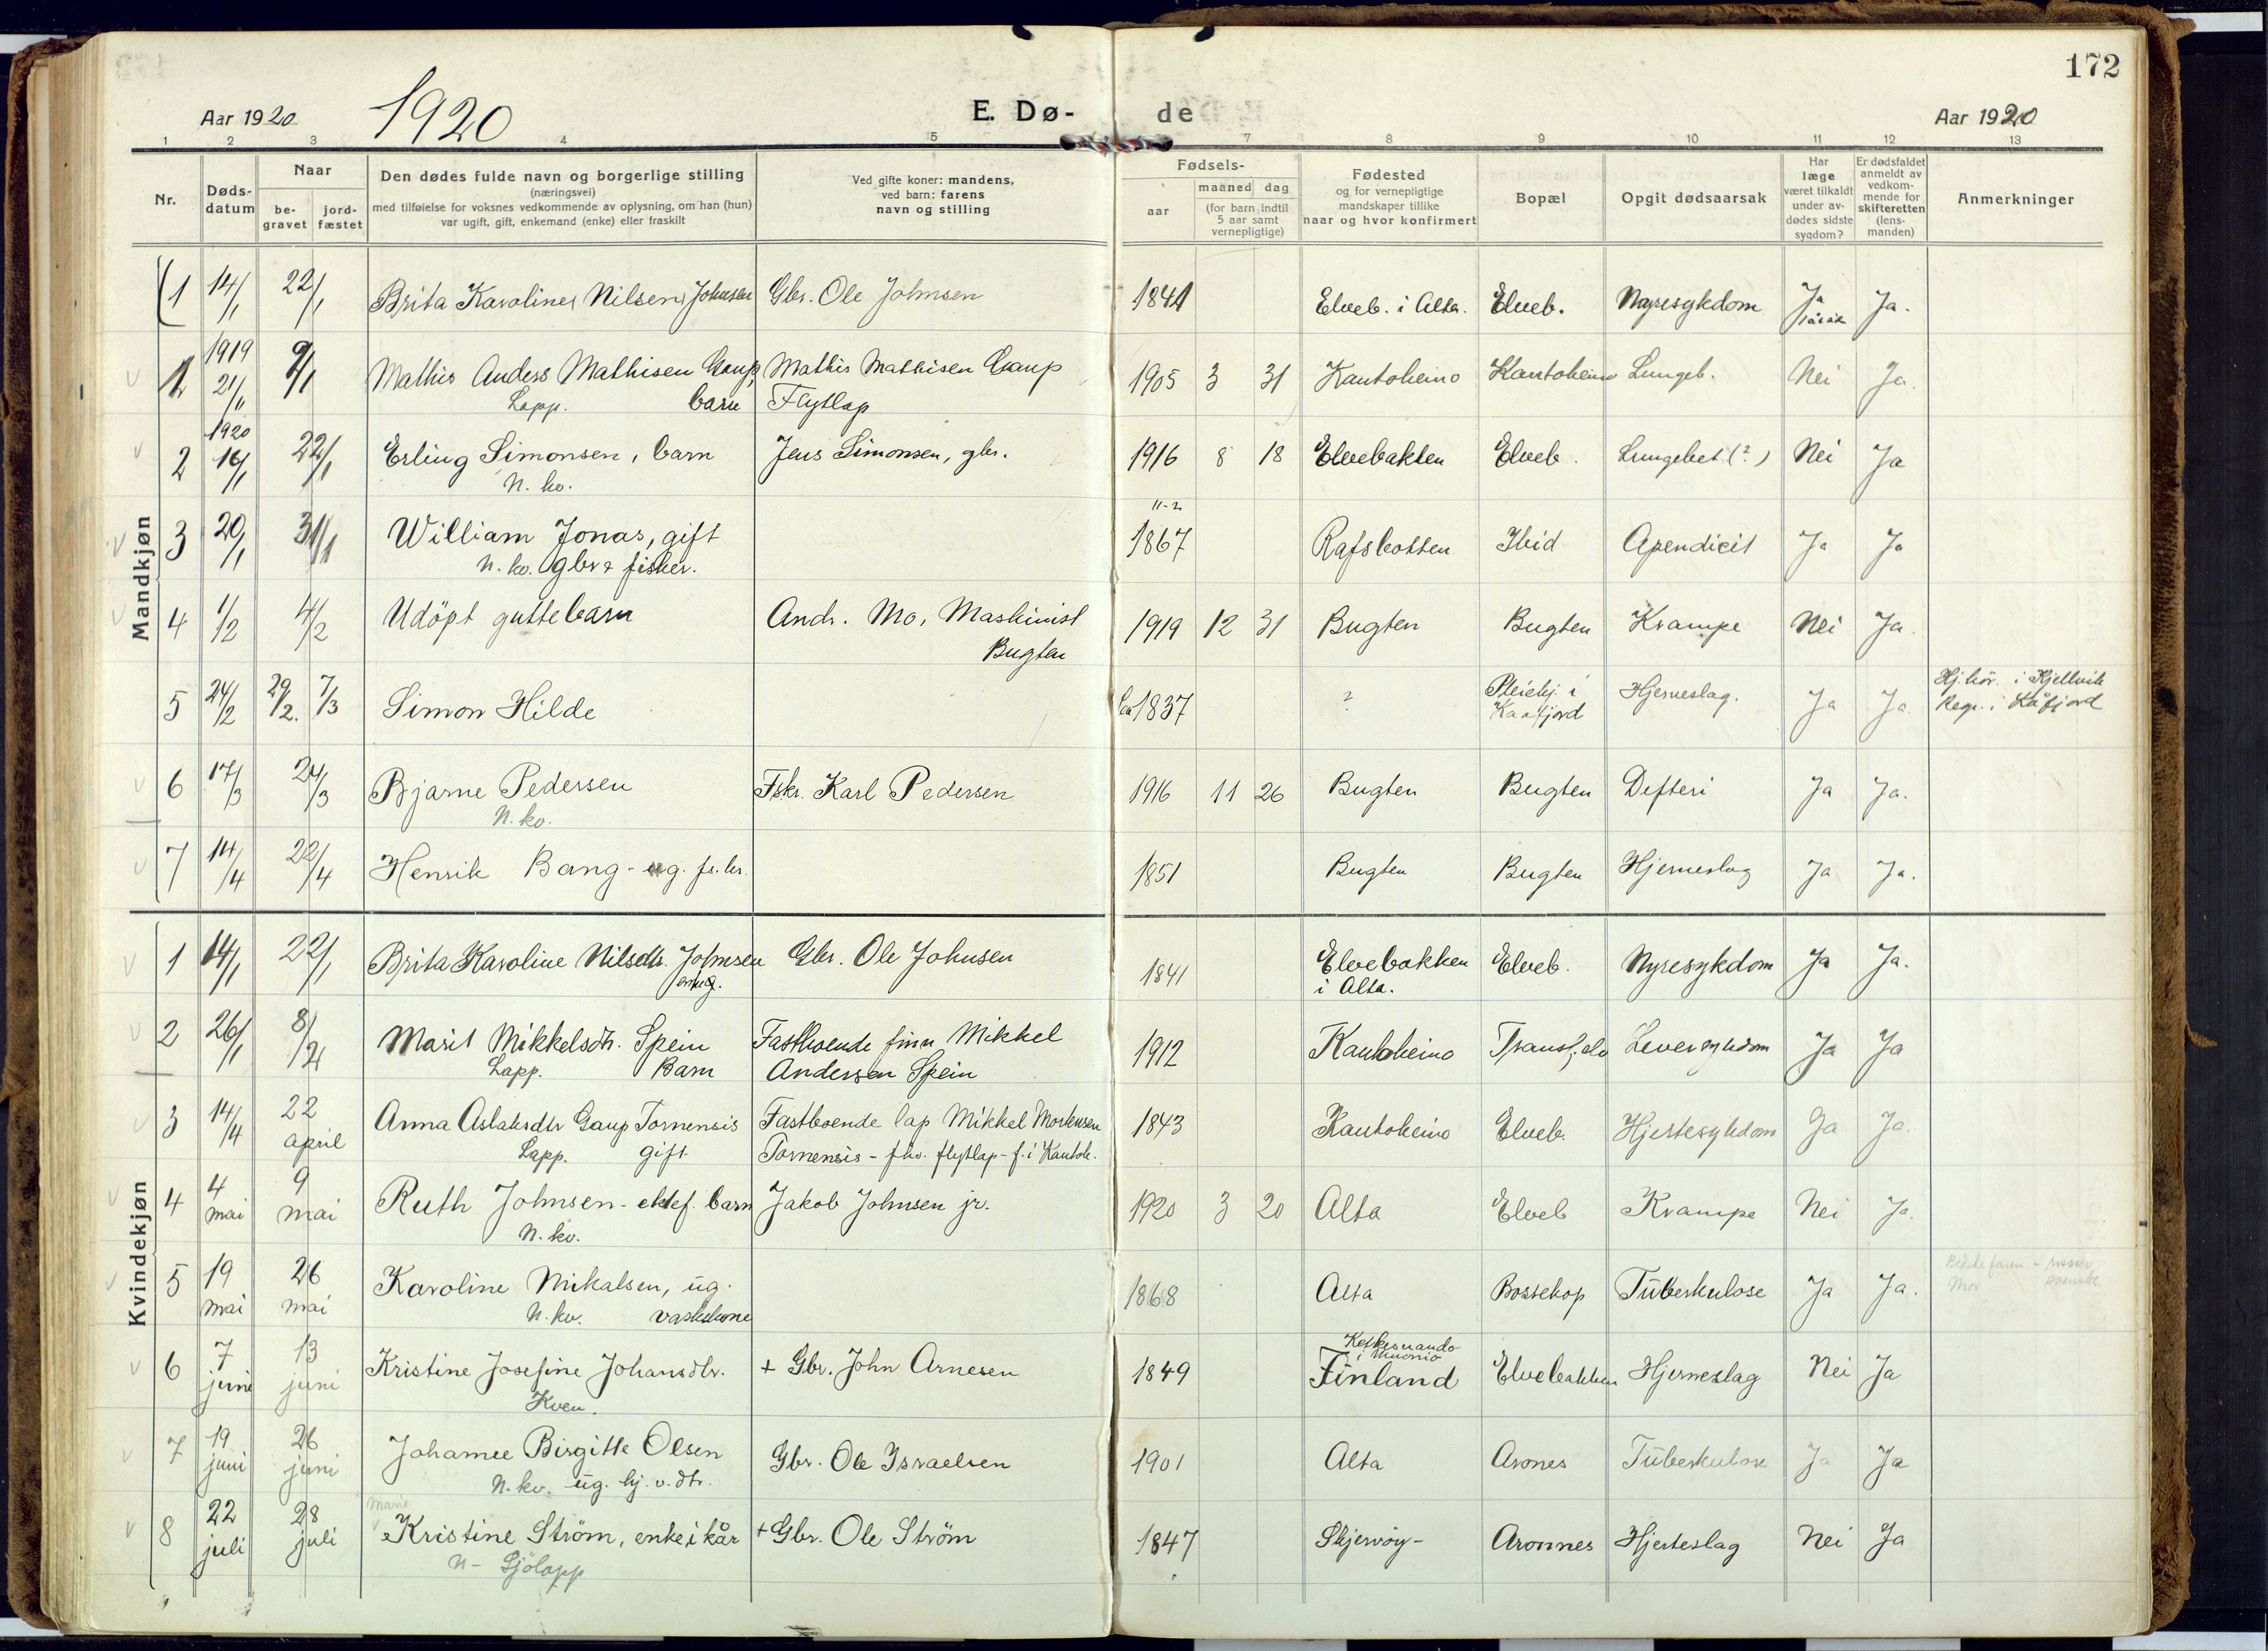 172
Aar 1920
1920
E. Dø-
de
Aar 1920
1 2 3 4 5 7 8 9 10 11 12 13
Nr.
Døds-
datum
Naar
be-
gravet
jord-
fæstet
Den dødes fulde navn og borgerlige stilling
(næringsvei)
med tilføielse for voksnes vedkommende av oplysning, om han (hun)
var ugift, gift, enkemand (enke) eller fraskilt
Ved gifte koner: mandens,
ved barn: farens
navn og stilling
Fødsels-
aar
maaned dag
(for barn indtil
5 aar samt
vernepligtige)
Fødested
og for vernepligtige
mandskaper tillike
naar og hvor konfirmert
Bopæl
Opgit dødsaarsak
Har
læge
været tilkaldt
under av-
dødes sidste
sygdom?
Er dødsfaldet
anmeldt av
vedkom-
mende for
skifteretten
(lens-
manden)
Anmerkninger
Mandkjøn
(1 14/1 22/1 Brita Karoline Nilsen Johnsen Gbr. Ole Johnsen 1841 Elveb. i Alta. Elveb. Nyresykdom Ja Ja.
1919
1 21/11 9/1 Mathis Anders Mathisen Gaup, Mathis Mathisen Gaup 1905 3 31 Kautokeino Kautokeino Lungeb. Nei Ja.
Lapp. barn Flytlap
1920
2 16/1 22/1 Erling Simonsen, barn Jens Simonsen, gbr. 1916 8 18 Elvebakken Elveb. Lungebet.(?) Nei Ja
N. kv.
11-2
3 20/1 31/1 William Jonas, gift 1867 Rafsbotten Ibid Apendicit Ja Ja
N. kv. gbr & fisker.
4 1/2 4/2 Udöpt guttebarn Andr. Mo, Maskinist 1919 12 31 Bugten Bugten Krampe Nei Ja.
Bugten
5 24/2 29/2. 7/3 Simon Hilde Ca 1837 ? Pleiehj. i Hjerneslag. Ja Ja Hj. hör. i Kjellvik
Kaafjord Regr. i Kåfjord
6 17/3 24/3 Bjarne Pedersen Fskr. Karl Pedersen 1916 11 26 Bugten Bugten Defteri Ja Ja.
N. kv.
7 14/4 22/4 Henrik Bang - ug. fskr. 1851 Bugten Bugten Hjerneslag Ja Ja.
Kvindekjøn
1 14/1 22/1 Brita Karoline Nilsdtr. Johnsen Gbr. Ole Johnsen 1841 Elvebakken Elveb. Nyresykdom Ja Ja.
i Alta.
2 26/1 8/2 Marit Mikkelsdtr. Spein Fastboende finn Mikkel 1912 Kautokeino Leversykdom Ja Ja
Lapp. Barn Andersen Spein
3 14/4 22 Anna Aslaksdtr Gaup Tornensis Fastboende lap Mikkel Mortensen 1843 Kautokeino Elveb. Hjertesykdom Ja Ja.
april Lapp. gift Tornensis - fhv. flytlap - f. i Kautok.
4 4 9 Ruth Johnsen - ektef. barn Jakob Johnsen jr. 1920 3 20 Alta Elveb Krampe Nei Ja.
mai mai N. kv.
5 19 26 Karoline Mikalsen, ug. 1868 Alta Bossekop Tuberkulose Ja Ja. Bedstefaren - russer,
mai mai N. kv. vaskekone Mor svensk
Keskesuando
i Muonio
6 7 13 Kristine Josefine Johansdtr. + Gbr. John Arnesen 1849 Finland Elvebakken Hjerneslag Nei Ja
juni juni Kven.
7 19 26 Johanne Birgitte Olsen Gbr. Ole Israelsen 1901 Alta Arones Tuberkulose Ja Ja
juni juni N. kv. ug. hj. v. dtr.
Marit
8 22 28 Kristine Ström, enke i kår + Gbr. Ole Ström 1847 Skjervöy - Aronnes Hjerteslag Nei Ja
juli juli N - Sjölapp